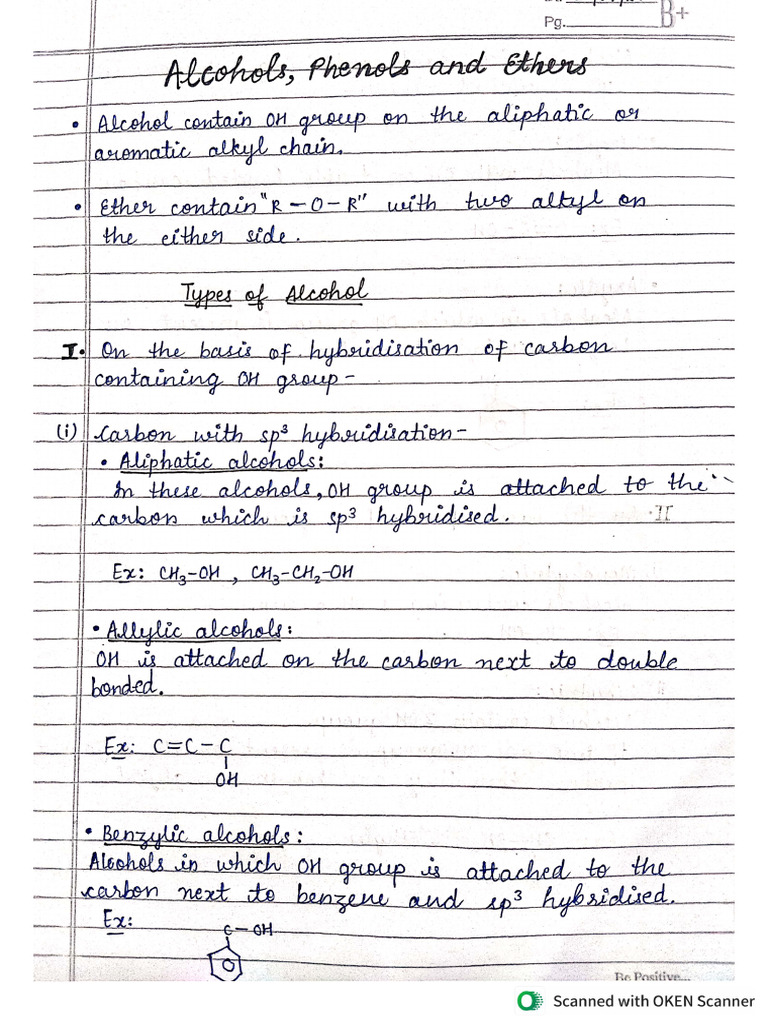 Pg. B+
Alcohols, Phenols and Ethers
• Alcohol contain OH group on the aliphatic or
aromatic alkyl chain.
• Ether contain "R-O-R" with two alkyl on
the either side.
Types of Alcohol
I. On the basis of hybridisation of carbon
containing OH group-
(i) Carbon with sp³ hybridisation-
• Aliphatic alcohols:
In these alcohols, OH group is attached to the
carbon which is sp³ hybridised.
Ex: CH₃-OH, CH₃-CH₂-OH
• Allylic alcohols:
OH is attached on the carbon next to double
bonded.
Ex: C=C-C
OH
• Benzylic alcohols:
Alcohols in which OH group is attached to the
carbon next to benzene and sp³ hybridised.
Ex:
C-OH
Be Positive...
Scanned with OKEN Scanner